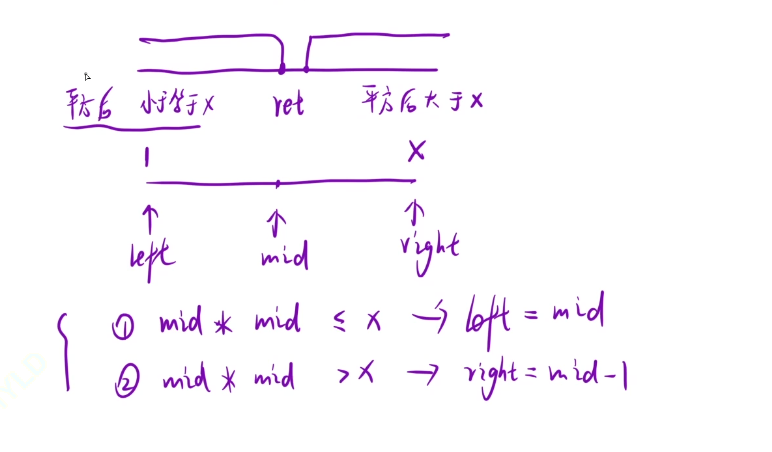 平方后 小于等于x ret 平方后大于x
1 x
left mid right
① mid * mid ≤ x → left = mid
② mid * mid > x → right = mid-1